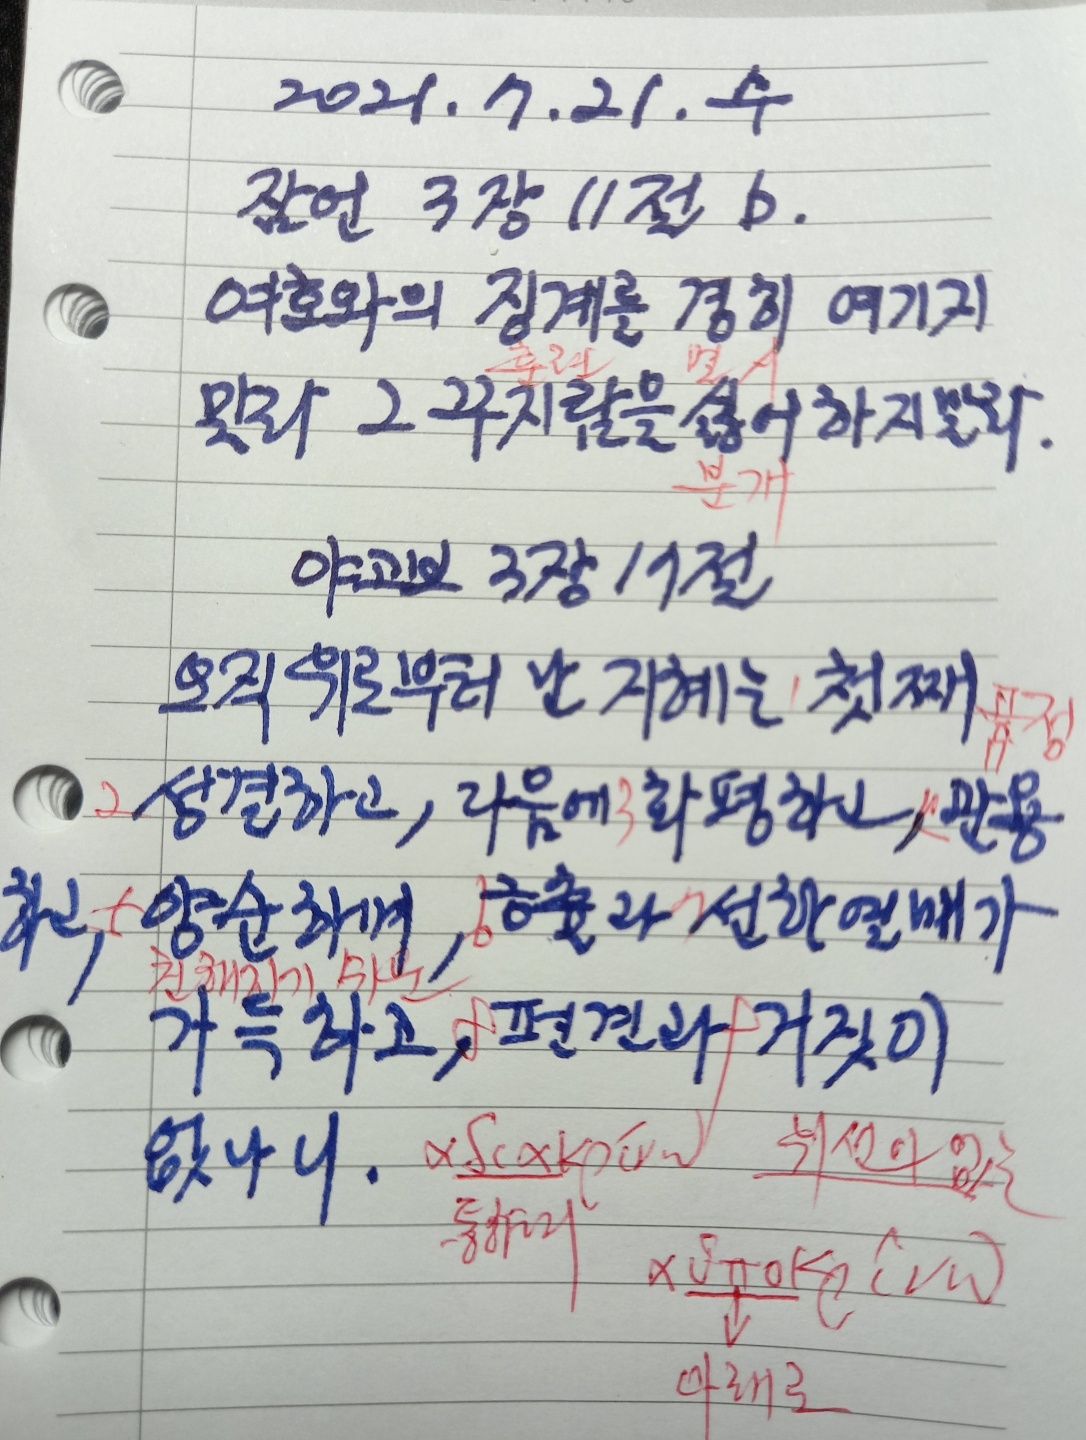 2021. 7. 21. 수
잠언 3장 11절 b.
여호와의 징계를 경히 여기지
훈련 멸시
말라 그 꾸지람을 싫어하지말라.
분개
야고보 3장 17절
오직 위로부터 난 지혜는 1 첫째
품정
2 성결하고, 다음에 3 화평하고, 관용
하고, 양순하며, 긍휼과 7 선한 열매가
친해지기 쉬운
가득하고, 8 편견과 거짓이
없나니. 위선이 없는
통하여
아래로